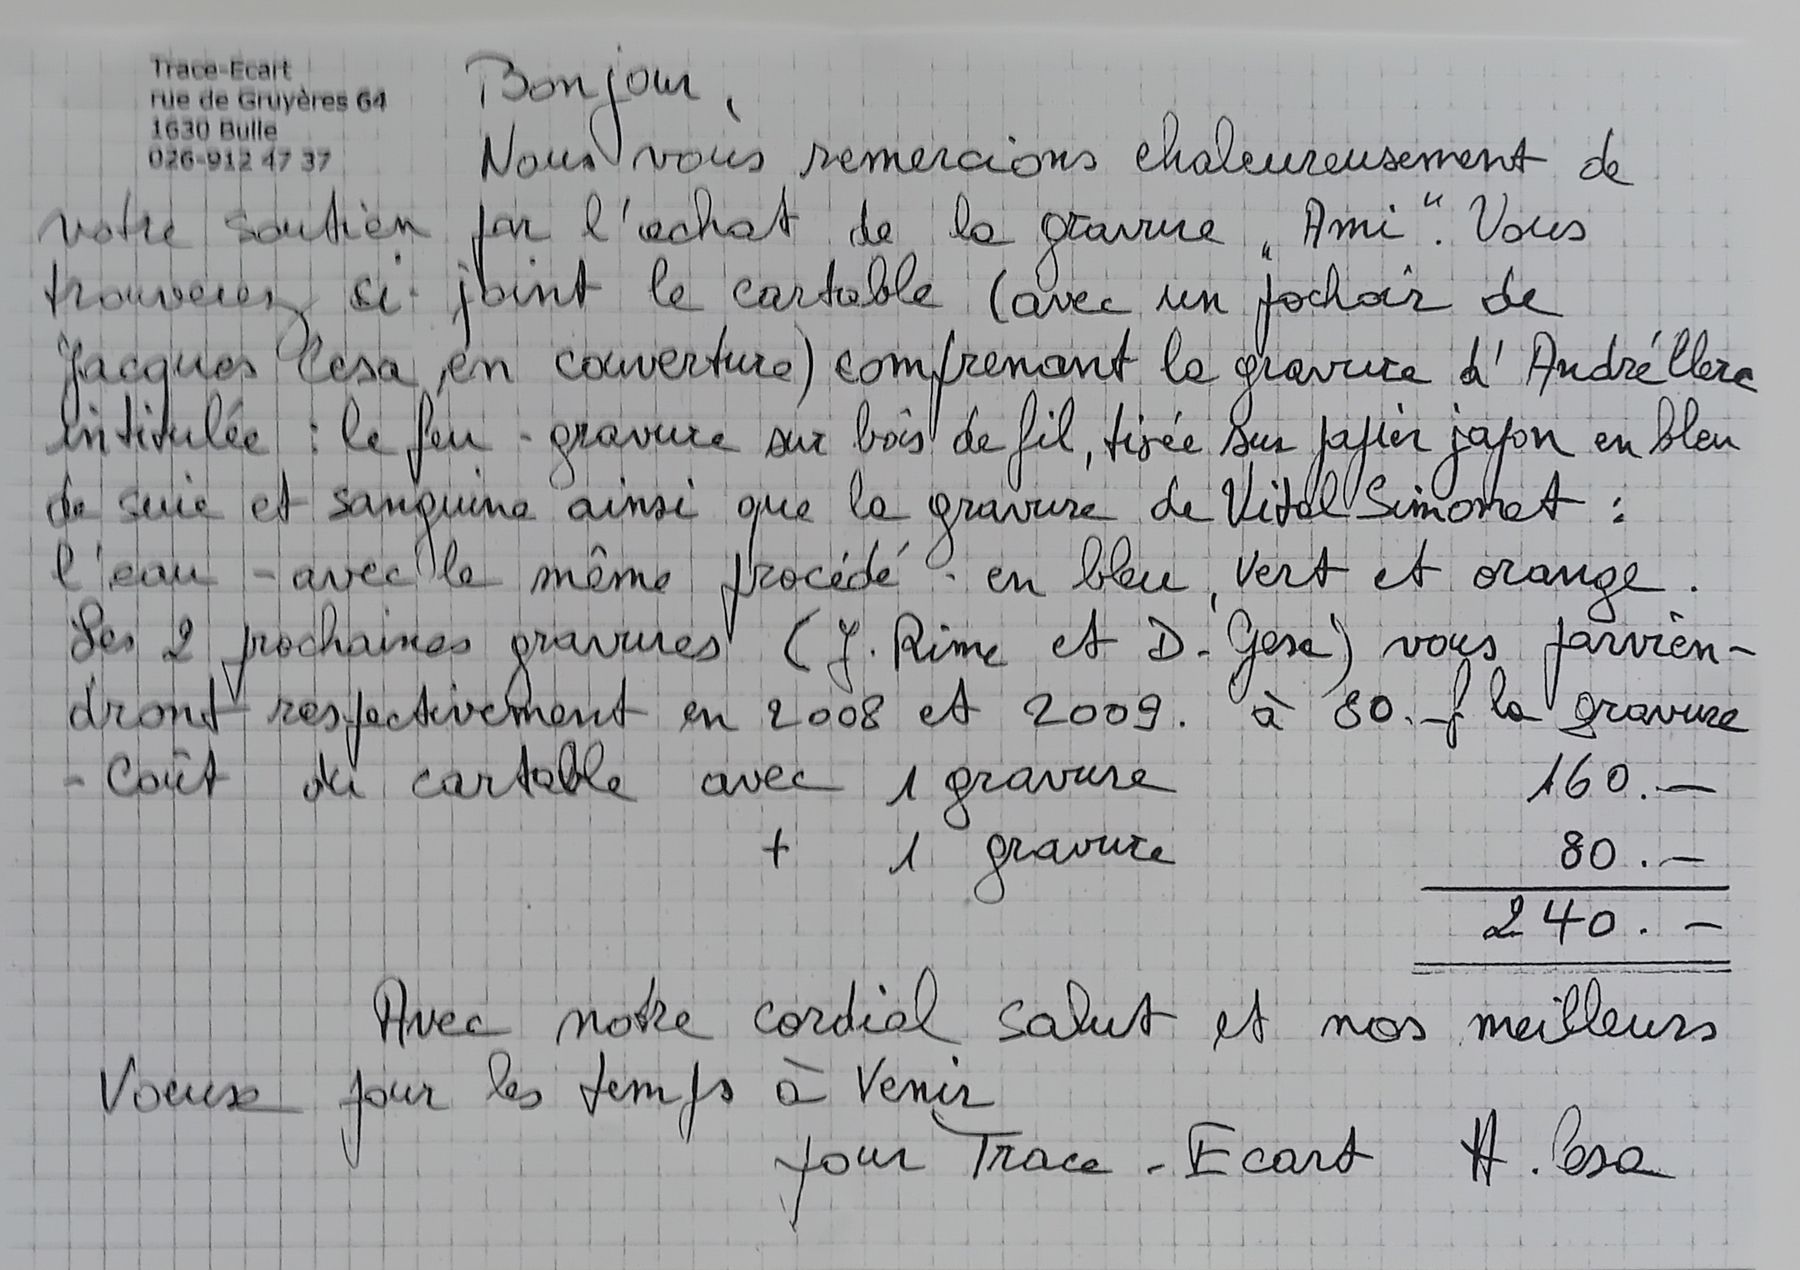 Trace-Ecart
rue de Gruyères 64
1630 Bulle
026-912 47 37
Bonjour,
Nous vous remercions chaleureusement de
votre soutien par l'achat de la gravure „Ami“. Vous
trouverez si joint le cartable (avec un pochoir de
Jacques Cesa en couverture) comprenant la gravure d'André
intitulée : le feu - gravure sur bois de fil, tirée sur papier japon en bleu
de suie et sanguine ainsi que la gravure de Vital Simonet :
l'eau - avec le même procédé - en bleu, vert et orange.
Les 2 prochaines gravures (J. Rime et D. ) vous parvien-
dront respectivement en 2008 et 2009. à 80.- la gravure
- Coût du cartable avec 1 gravure 160.—
+ 1 gravure 80.—
240.—
Avec notre cordial salut et nos meilleurs
Voeux pour les temps à venir
pour Trace-Ecart H. Cesa